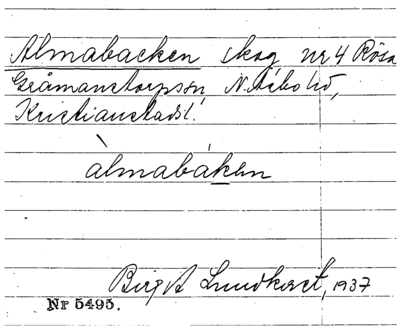 Almabacken skog nr 4 Rösa
Gråmanstorpssn, N. Åsbohd,
Kristianstadsl.
àlmabáken
Birgit Lundkvist, 1937
Nr 5495.